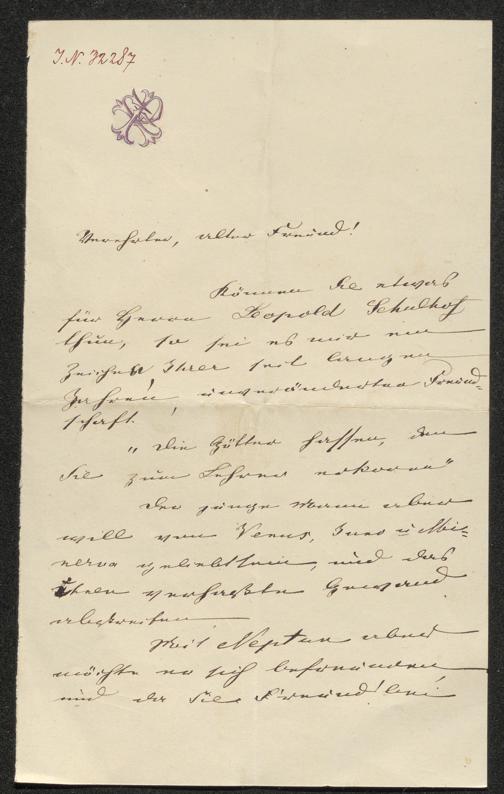 I.N. 32287
Verehrter, alter Freund!
Können Sie etwas
für Herrn Leopold Schulhof
thun, so sei es mir ein
Zeichen Ihrer seit langen
Jahren, unveränderten Freund=
schaft.
„Die Götter hassen, den
Sie zum Lehrer erkoren"
Der junge Mann aber
will von Venus, Juno u Mi=
nerva geliebt sein, und das
verhaßte Gewand
abstreifen.
Mit Neptun aber
möchte er sich befreunden
und da Sie Freund bei